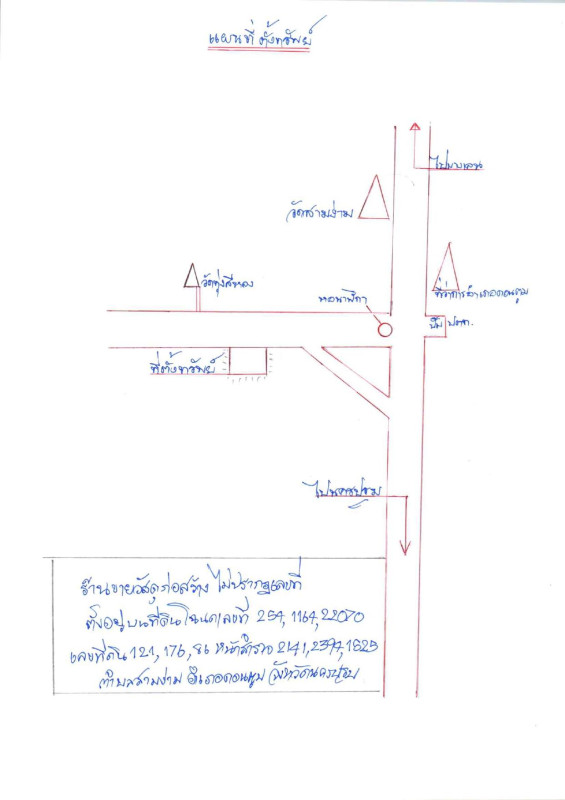 แผนที่ตั้งทรัพย์
ไปบางเลน
วัดสามง่าม
วัดทุ่งสีหลง
หอนาฬิกา
ที่ว่าการอำเภอดอนตูม
ปั๊ม ปตท.
ที่ตั้งทรัพย์
ไปนครปฐม
ร้านขายวัสดุก่อสร้าง ไม่ปรากฏเลขที่
ตั้งอยู่บนที่ดินโฉนดเลขที่ 254, 1164, 22070
เลขที่ดิน 121, 176, 86 หน้าสำรวจ 2141, 2394, 1525
ตำบลสามง่าม อำเภอดอนตูม จังหวัดนครปฐม